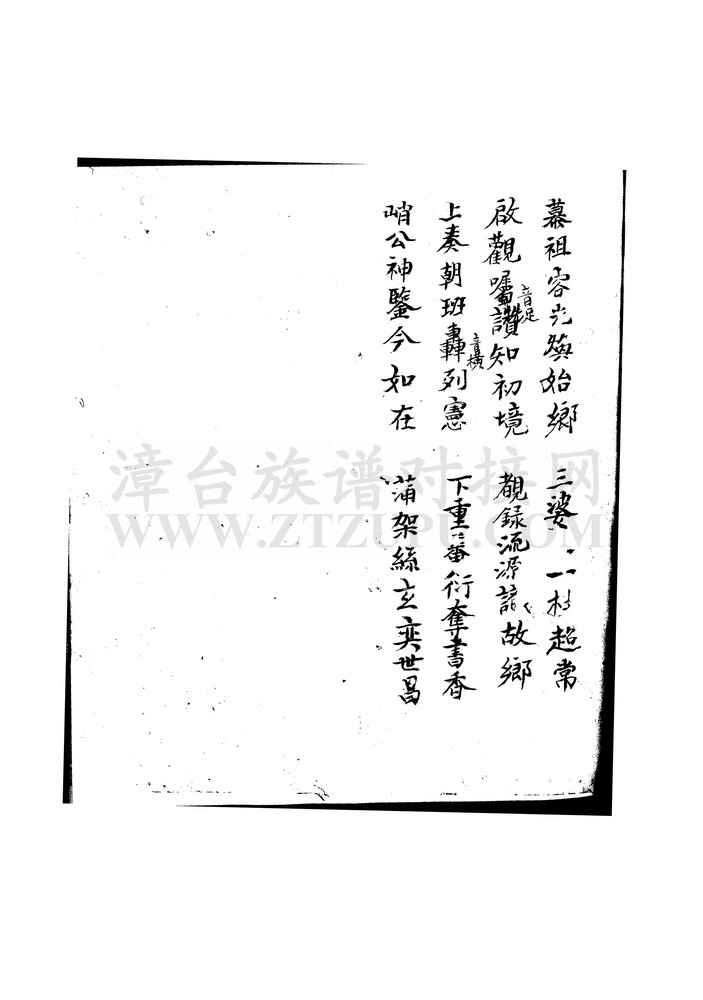 慕祖容光煥始鄉 三婆 一村超常
啟觀囑讚音足知初境 覩錄流源諒故鄉
上奏朝班轟音橫列憲 下重蕃衍奪書香
峭公神鑒今如在 蒲架絲玄奕世昌
漳台族谱对接网
WWW.ZTZUPU.COM